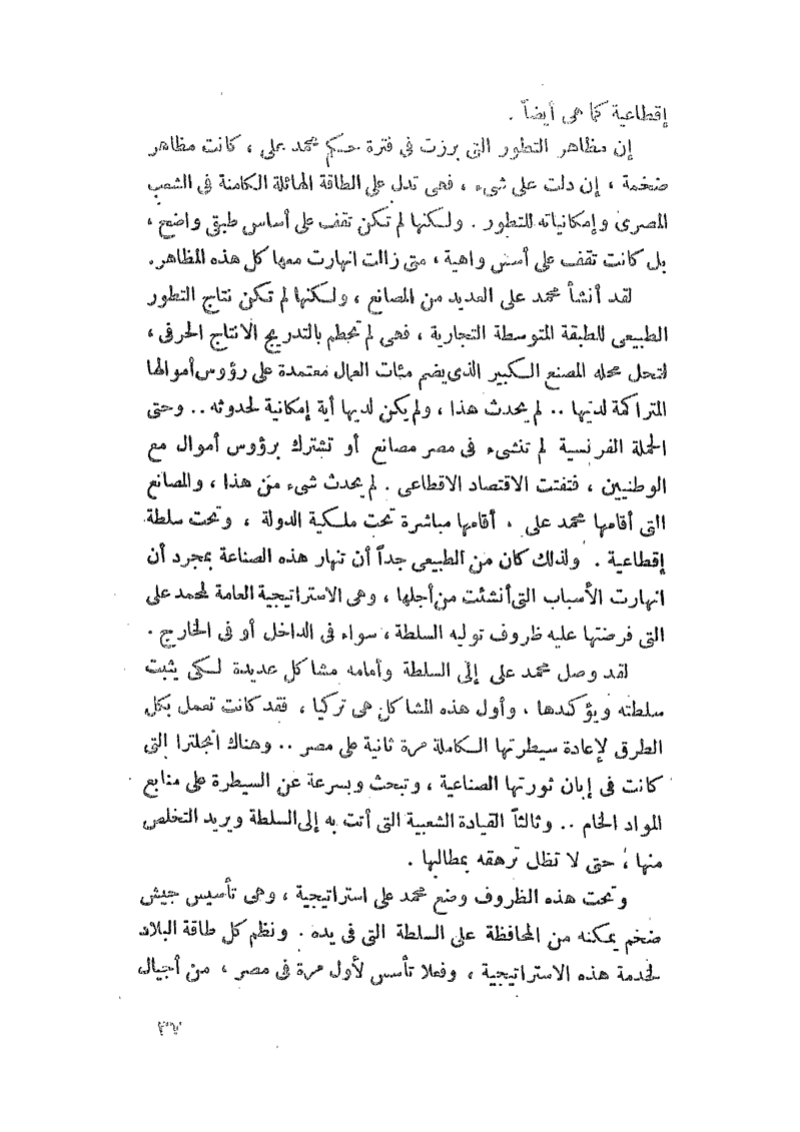 إقطاعية كما هى أيضاً .
إن مظاهر التطور التى برزت في فترة حكم محمد على ، كانت مظاهر
ضخمة ، إن دلت على شىء ، فهى تدل على الطاقة الهائلة الكامنة في الشعب
المصرى وإمكانياته للتطور . ولكنها لم تكن تقف على أساس طبقى واضح ،
بل كانت تقف على أسس واهية ، متى زالت انهارت معها كل هذه المظاهر.
لقد أنشأ محمد على العديد من المصانع ، ولكنها لم تكن نتاج التطور
الطبيعى للطبقة المتوسطة التجارية ، فهى لم تحطم بالتدريج الانتاج الحرفى ،
لتحل محله المصنع الكبير الذى يضم مئات العمال معتمدة على رؤوس أموالها
المتراكمة لديها .. لم يحدث هذا ، ولم يكن لديها أية إمكانية لحدوثه .. وحتى
الحملة الفرنسية لم تنشىء فى مصر مصانع أو تشترك برؤوس أموال مع
الوطنيين ، فتفتت الاقتصاد الاقطاعى . لم يحدث شىء من هذا ، والمصانع
التى أقامها محمد على . أقامها مباشرة تحت ملكية الدولة ، وتحت سلطة
إقطاعية . ولذلك كان من الطبيعى جداً أن تنهار هذه الصناعة بمجرد أن
انهارت الأسباب التى أنشئت من أجلها ، وهى الاستراتيجية العامة لمحمد على
التى فرضتها عليه ظروف توليه السلطة ، سواء فى الداخل أو فى الخارج .
لقد وصل محمد على إلى السلطة وأمامه مشاكل عديدة لكى يثبت
سلطته ويؤكدها . وأول هذه المشاكل هى تركيا ، فقد كانت تعمل بكل
الطرق لإعادة سيطرتها الكاملة مرة ثانية على مصر .. وهناك انجلترا التى
كانت فى إبان ثورتها الصناعية ، وتبحث وبسرعة عن السيطرة على منابع
المواد الخام .. وثالثاً القيادة الشعبية التى أتت به إلى السلطة ويريد التخلص
منها ، حتى لا تظل ترهقه بمطالبها .
وتحت هذه الظروف وضع محمد على استراتيجية ، وهى تأسيس جيش
ضخم يمكنه من المحافظة على السلطة التى فى يده . ونظم كل طاقة البلاد
لخدمة هذه الاستراتيجية ، وفعلا تأسس لأول مرة فى مصر ، من أجيال